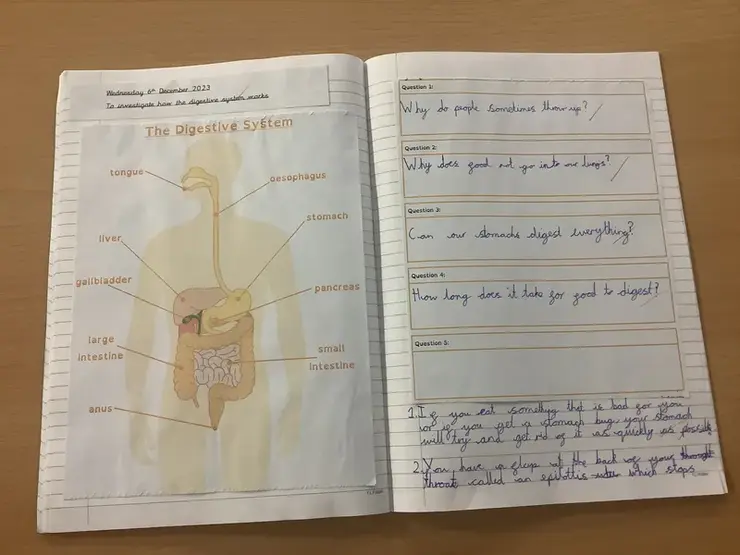 Wednesday 6th December 2023
To investigate how the digestive system works
The Digestive System
tongue
oesophagus
stomach
liver
gallbladder
pancreas
large
intestine
small
intestine
anus
Question 1:
Why do people sometimes throw up?
Question 2:
Why does food not go into our lungs?
Question 3:
Can our stomachs digest everything?
Question 4:
How long does it take for food to digest?
Question 5:
1. If you eat something that is bad for you
or if you get a stomach bug, your stomach
will try and get rid of it as quickly as possible.
2. You have a flap at the back of your
throat called an epilottis which stops